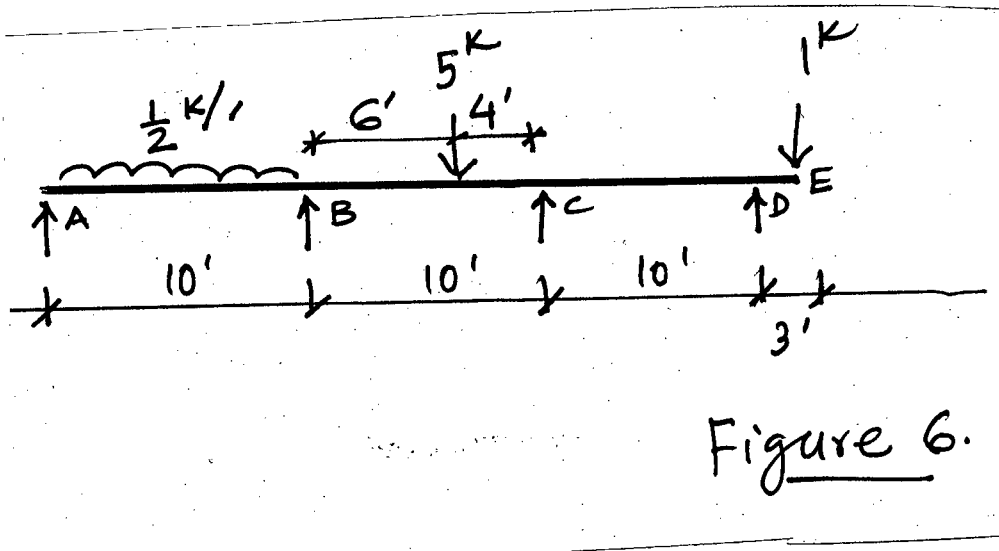 5 K
1 K
1/2 K/'
6'
4'
A
B
C
D
E
10'
10'
10'
3'
Figure 6.